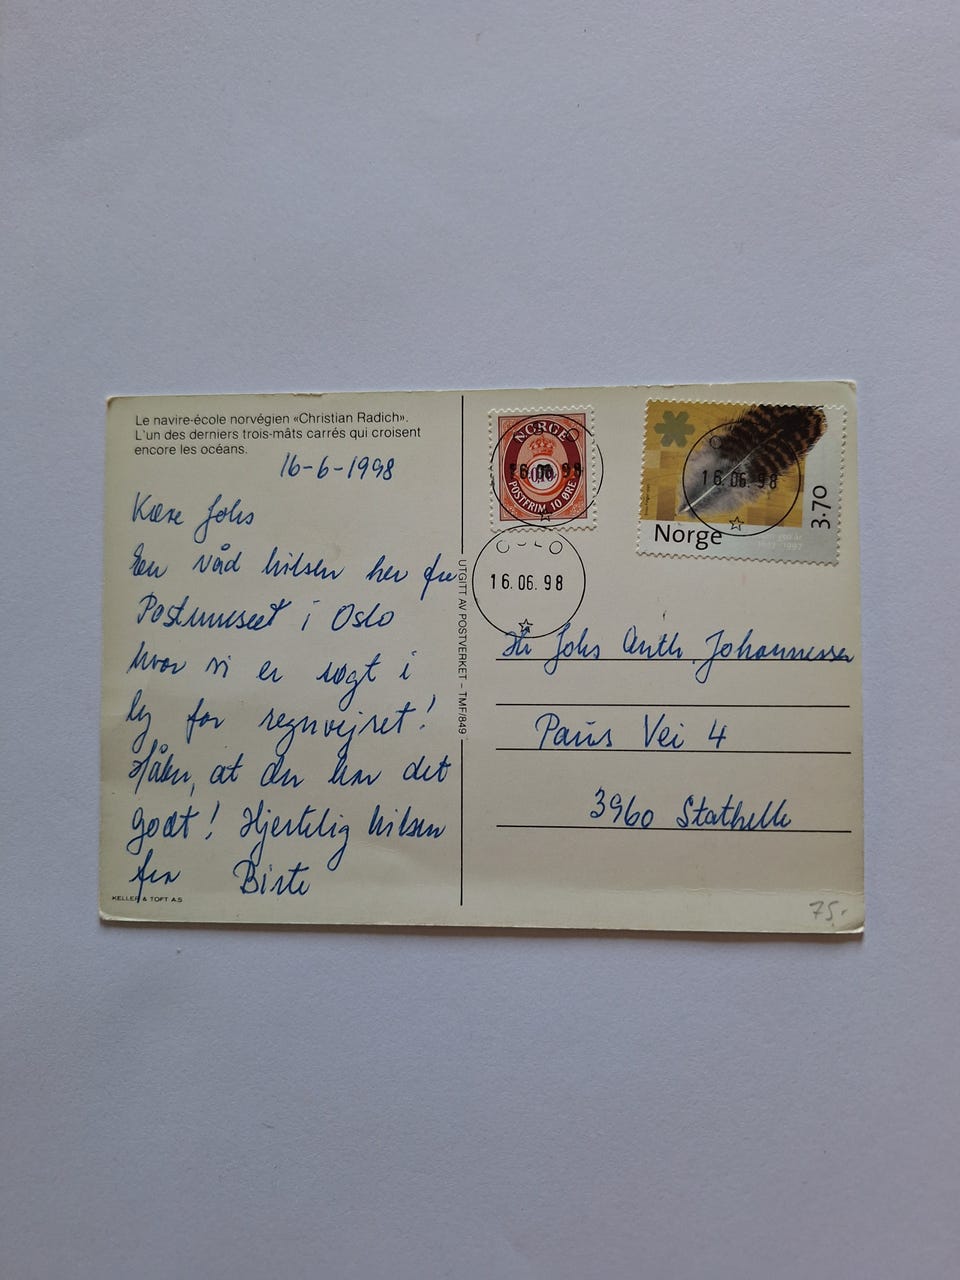 Le navire-école norvégien «Christian Radich».
L'un des derniers trois-mâts carrés qui croisent
encore les océans.
16-6-1998
Kære Johs
En våd hilsen her fra
Postmuseet i Oslo
hvor vi er søgt i
ly for regnvejret!
Håber, at du har det
godt! Hjertelig hilsen
fra Birte
KELLER & TOFT A.S
UTGITT AV POSTVERKET – TMF/849
NORGE
0,10
POSTFRIM. 10 ØRE
OSLO
16.06.98
Norge
3.70
16.06.98
OSLO
16.06.98
Hr Johs Anth. Johannessen
Paus Vei 4
3960 Stathelle
75,-